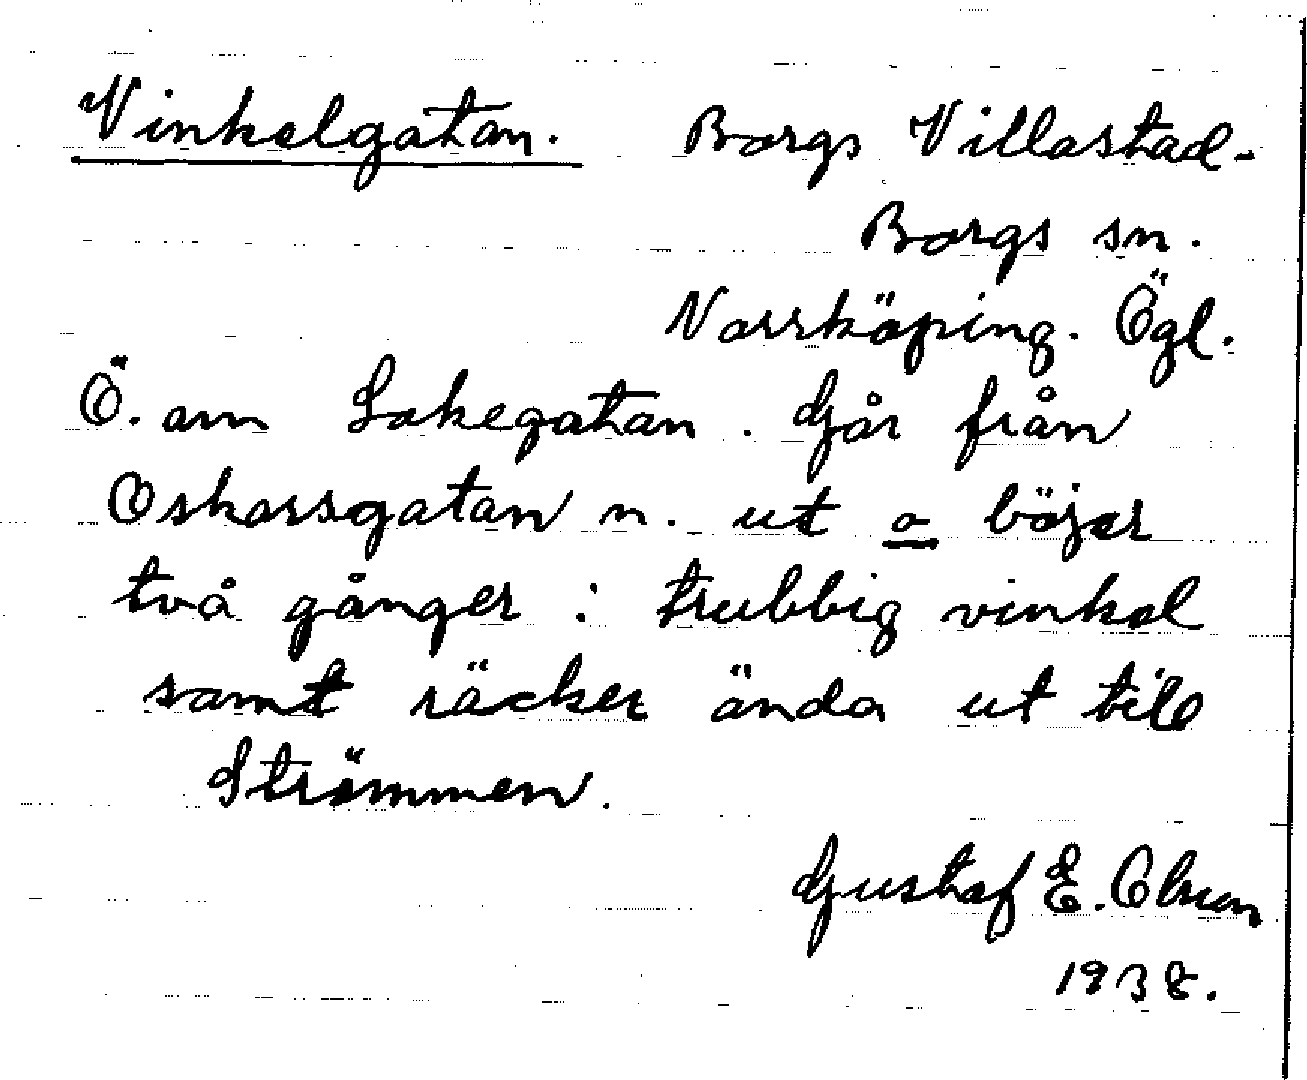 Vinkelgatan. Borgs Villastad-
Borgs sn.
Norrköping. Ögl.
Ö. om Lokegatan. Går från
Oskarsgatan n. ut o böjer
två gånger i trubbig vinkel
samt räcker ända ut till
Strömmen.
Gustaf E. Olson
1938.